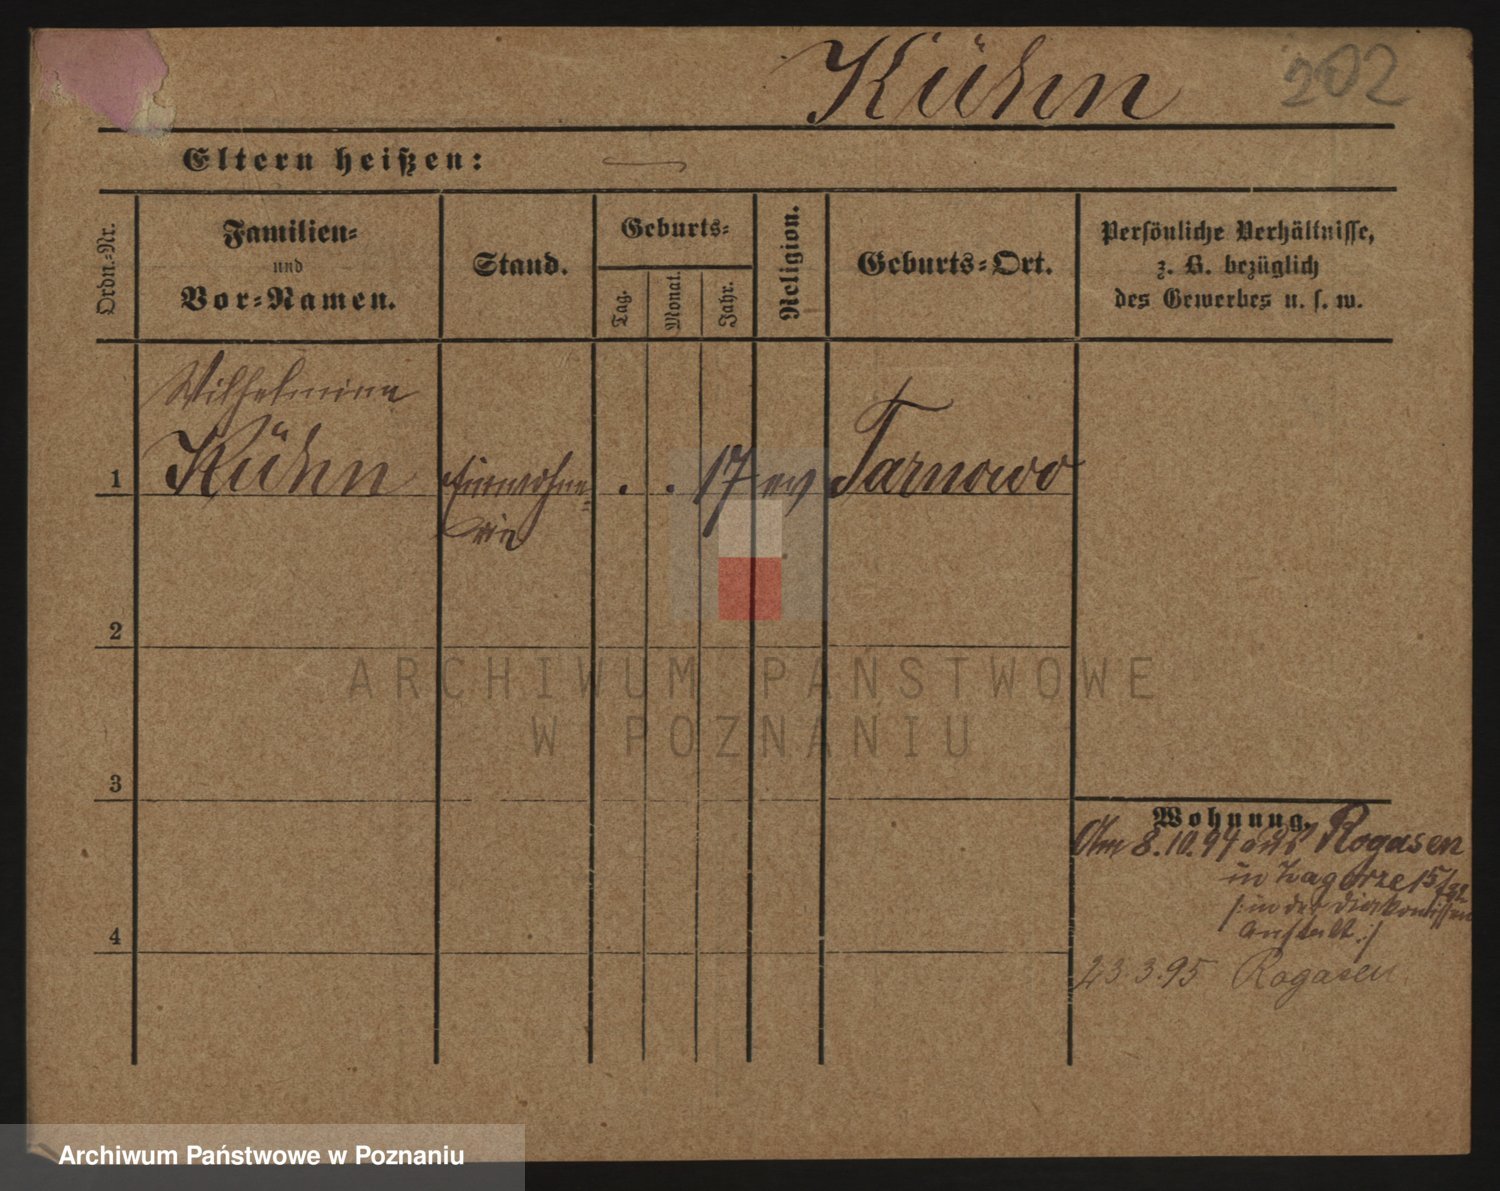 Kühn
202
Eltern heißen:
Ordn.-Nr.
Familien-
und
Vor-Namen.
Stand.
Geburts-
Tag.
Monat.
Jahr.
Religion.
Geburts-Ort.
Persönliche Verhältnisse,
z. B. bezüglich
des Gewerbes u. s. w.
Wilhelmine
1 Kühn Einwohne= . . 17 ev Tarnowo
rin
2
3
4
Wohnung.
Am 8.10.94 aus Rogasen
in Zagorze 15/
/: in der Diakonissen
Anstalt :/
23.3.95 Rogasen
ARCHIWUM PAŃSTWOWE
W POZNANIU
Archiwum Państwowe w Poznaniu